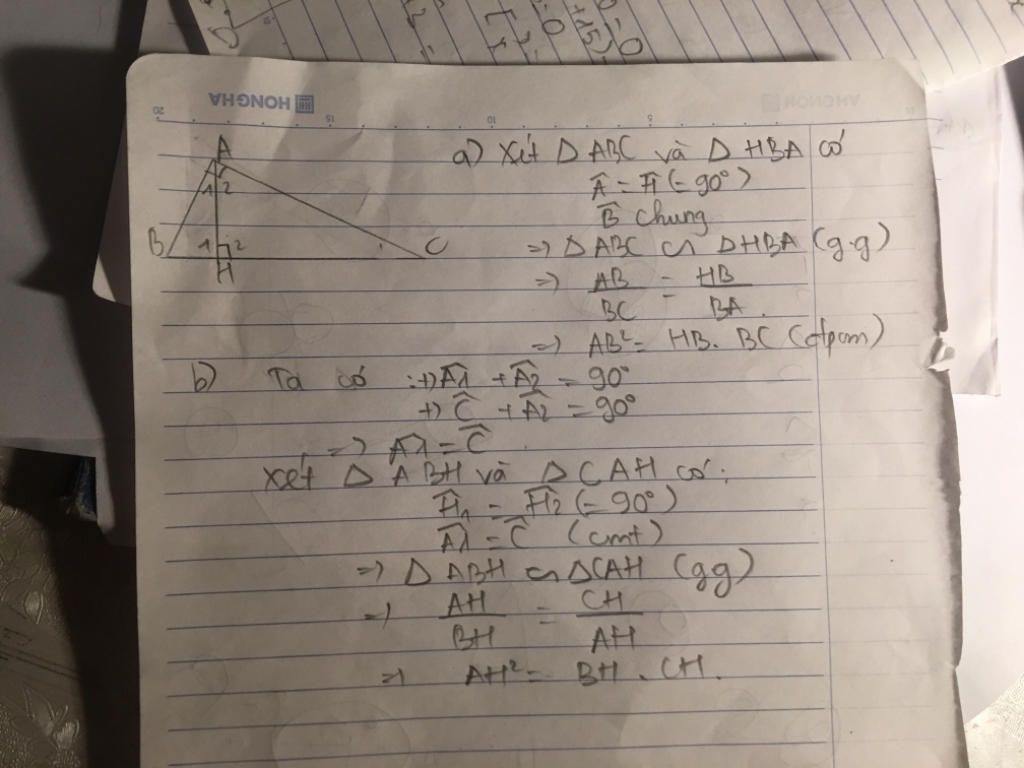 HONG HA
20
15
10
5
A
1 2
B 1 2 C
H
a) Xét Δ ABC và Δ HBA có
Â = Ĥ (= 90°)
B̂ chung
=> Δ ABC ∽ Δ HBA (g.g)
=> AB/BC = HB/BA.
=> AB² = HB. BC (đpcm)
b) Ta có : +) Â1 + Â2 = 90°
+) Ĉ + Â2 = 90°
=> Â1 = Ĉ.
Xét Δ ABH và Δ CAH có:
Ĥ1 = Ĥ2 (= 90°)
Â1 = Ĉ (cmt)
=> Δ ABH ∽ Δ CAH (gg)
=> AH/BH = CH/AH
=> AH² = BH . CH.